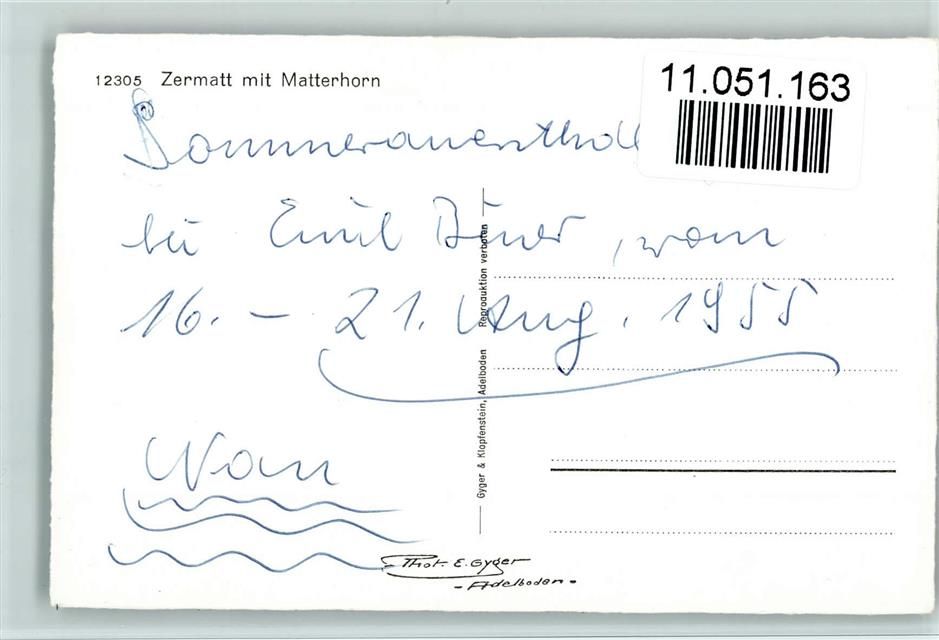 12305 Zermatt mit Matterhorn
11.051.163
bei Emil , vom
16. – 21. Aug. 1955
Gyger & Klopfenstein, Adelboden Reproduktion verboten
Phot. E. Gyger
- Adelboden -